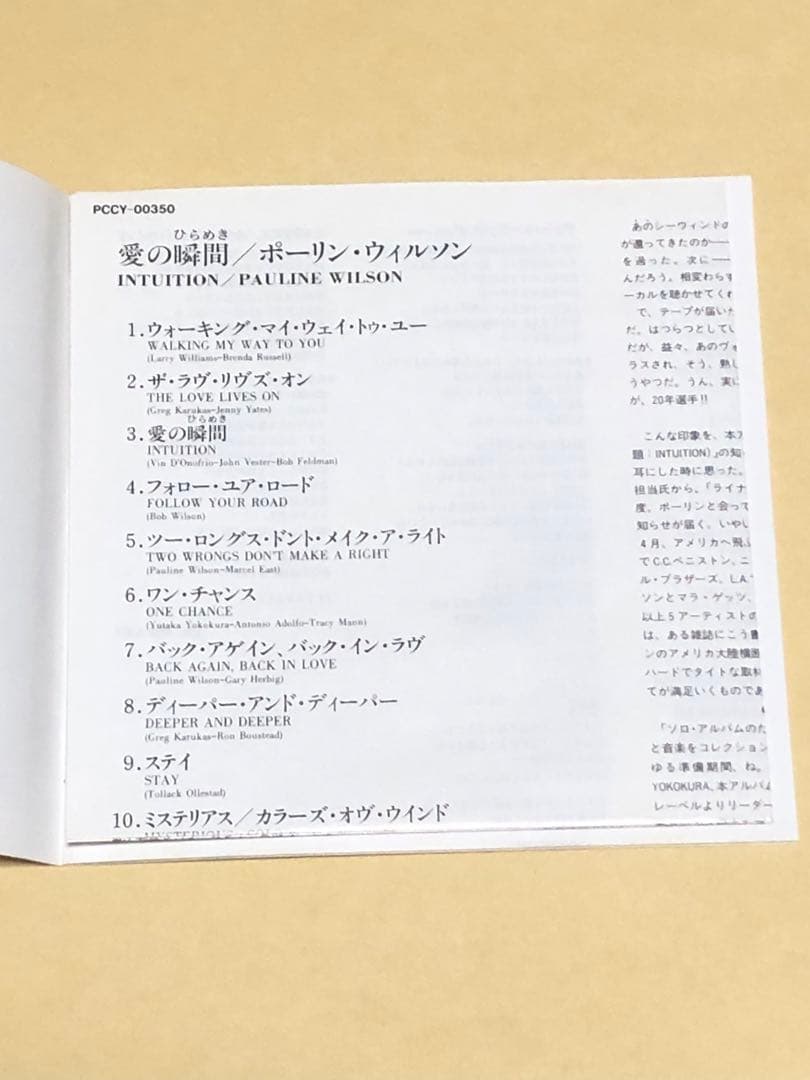 PCCY-00350
ひらめき
愛の瞬間／ポーリン・ウィルソン
INTUITION／PAULINE WILSON
1.ウォーキング・マイ・ウェイ・トゥ・ユー
WALKING MY WAY TO YOU
(Larry Williams-Brenda Russell)
2.ザ・ラヴ・リヴズ・オン
THE LOVE LIVES ON
(Greg Karukas-Jenny Yates)
ひらめき
3.愛の瞬間
INTUITION
(Vin D'Onofrio-John Vester-Bob Feldman)
4.フォロー・ユア・ロード
FOLLOW YOUR ROAD
(Bob Wilson)
5.ツー・ロングス・ドント・メイク・ア・ライト
TWO WRONGS DON'T MAKE A RIGHT
(Pauline Wilson-Marcel East)
6.ワン・チャンス
ONE CHANCE
(Yutaka Yokokura-Antonio Adolfo-Tracy Mann)
7.バック・アゲイン、バック・イン・ラヴ
BACK AGAIN, BACK IN LOVE
(Pauline Wilson-Gary Herbig)
8.ディーパー・アンド・ディーパー
DEEPER AND DEEPER
(Greg Karukas-Ron Boustead)
9.ステイ
STAY
(Tollack Ollestad)
10.ミステリアス／カラーズ・オヴ・ウインド
あのシーウィンドの
が遭ってきたのか――
を過った。次に――
んだろう。相変わらず
ーカルを聴かせてくれ
で、テープが届いた
だ。はつらつとしてい
だが、益々、あのヴォ
ラスされ、そう、熟し
うやつだ。うん、実に
が、20年選手!!
こんな印象を、本ア
題：INTUITION)』の知
耳にした時に思った。
担当氏から、「ライナ
度、ポーリンと会って
知らせが届く。いやい
4月、アメリカへ飛ぶ
でC.C.ペニストン、ニ
ル・ブラザーズ、L.A.
ソンとマラ・ゲッツ、
以上5アーティストの
は、ある雑誌にこう書
ンのアメリカ大陸横断
ハードでタイトな取材
てが満足いくものであ
「ソロ・アルバムのた
と音楽をコレクション
ゆる準備期間、ね。
YOKOKURA、本アルバム
レーベルよりリーダー